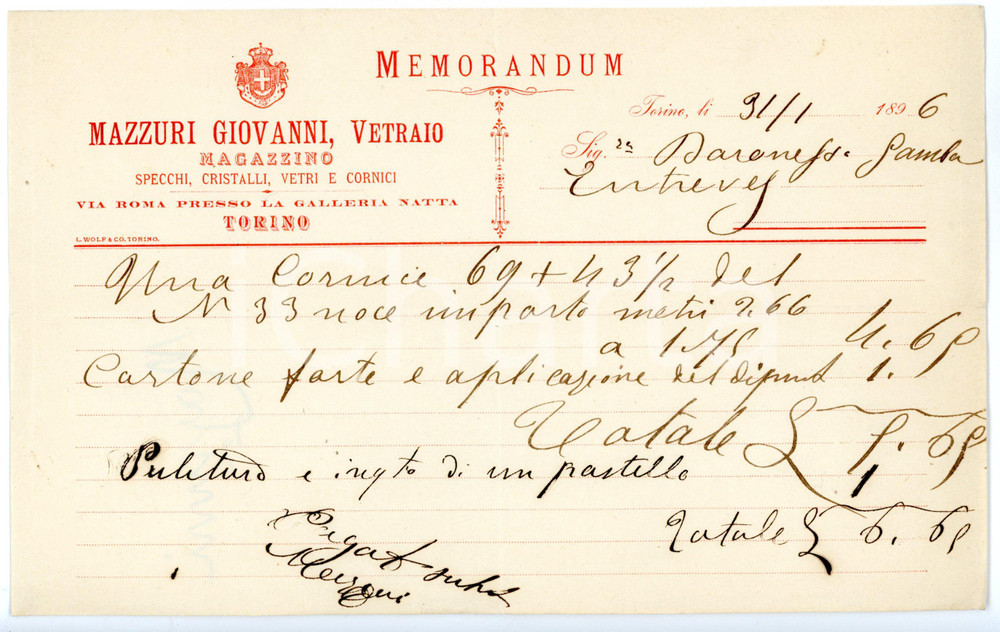 MEMORANDUM
MAZZURI GIOVANNI, VETRAIO
MAGAZZINO
SPECCHI, CRISTALLI, VETRI E CORNICI
VIA ROMA PRESSO LA GALLERIA NATTA
TORINO
L. WOLF & CO. TORINO.
Torino, li 31/1 1896
Sig.ra Baroness Gamba
Entreves
Una Cornice 69 + 43 1/2 del
N 33 noce importo metri 2.66
a 1.75 4.65
Cartone forte e aplicazione del dipint 1.
Totale £ 5.65
Pulitura e di un pastello 1
Totale £ 6.65
Pagat
Mazzuri